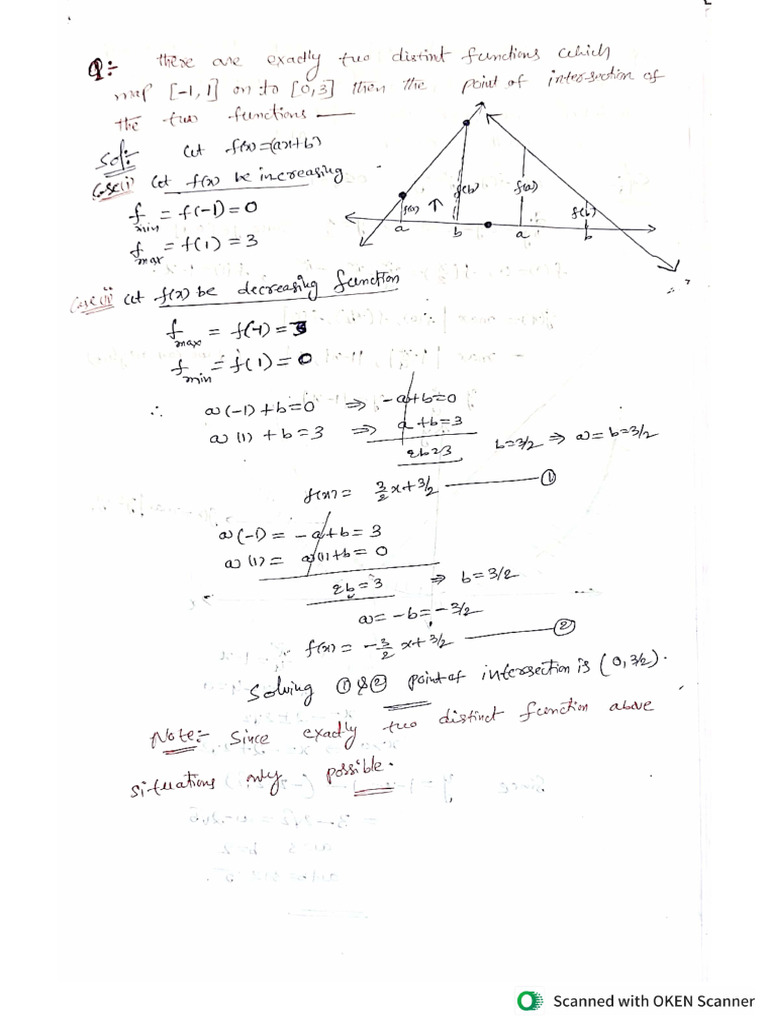 Q:- there are exactly two distint functions which
map [-1, 1] on to [0, 3] then the point of intersection of
the two functions —
Sol:- Let f(x) = (ax+b)
Case(i) Let f(x) be increasing
f min = f(-1) = 0
f max = f(1) = 3
f(a) ↑ f(b) f(a) f(b)
a b a b
Case(ii) Let f(x) be decreasing function
f max = f(-1) = 3
f min = f(1) = 0
∴ a(-1) + b = 0 ⇒ -a + b = 0
a(1) + b = 3 ⇒ a + b = 3
2b = 3 b = 3/2 ⇒ a = b = 3/2
f(x) = 3/2 x + 3/2 ——— ①
a(-1) = -a + b = 3
a(1) = a(1) + b = 0
2b = 3 ⇒ b = 3/2
a = -b = -3/2
f(x) = -3/2 x + 3/2 ——— ②
Solving ① & ② point of intersection is (0, 3/2).
Note:- Since exactly two distinct function above
situations only possible.
Scanned with OKEN Scanner